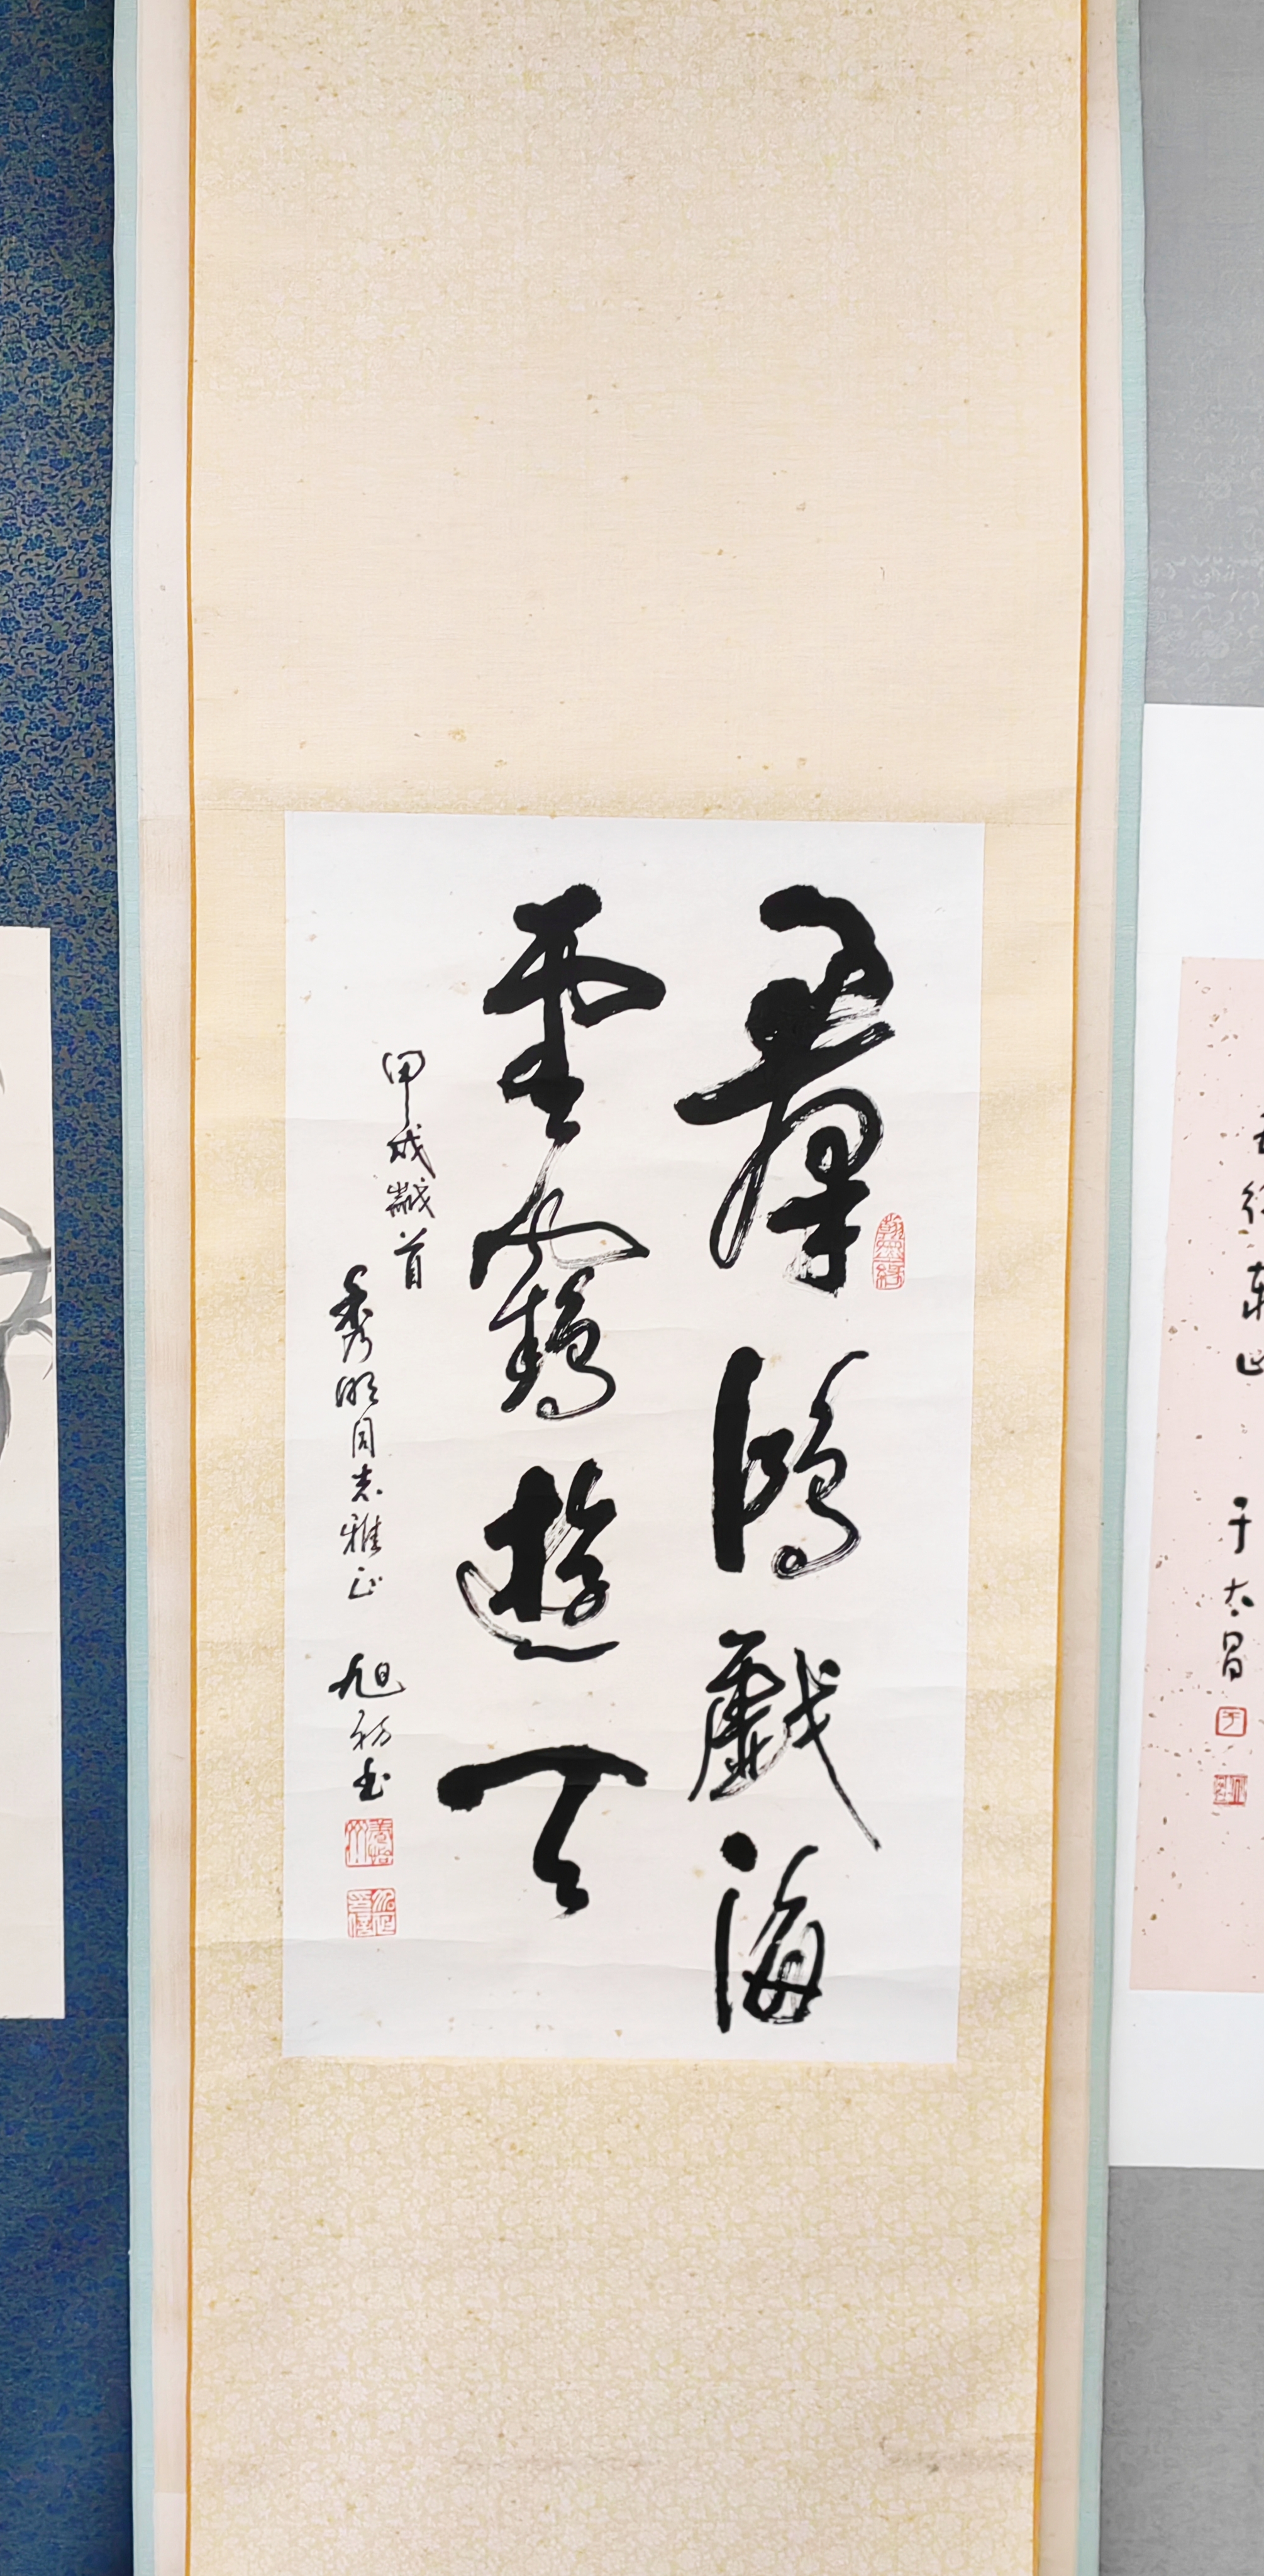 羣鴻戲海
雲鶴遊天
甲戌歲首
秀明同志雅正
旭初書
于太昌